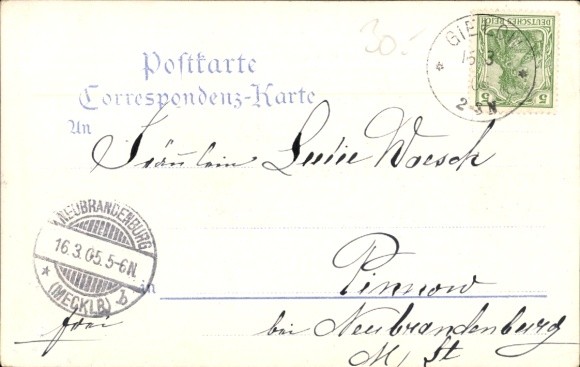 30.-
DEUTSCHES REICH
5 5
15 3
2-3 N
Postkarte
Correspondenz-Karte
An
Fräulein Lucie Woesch
NEUBRANDENBURG
16.3.05.5-6N.
* (MECKLB) b
in Pinnow
frei
bei Neubrandenburg
M/St